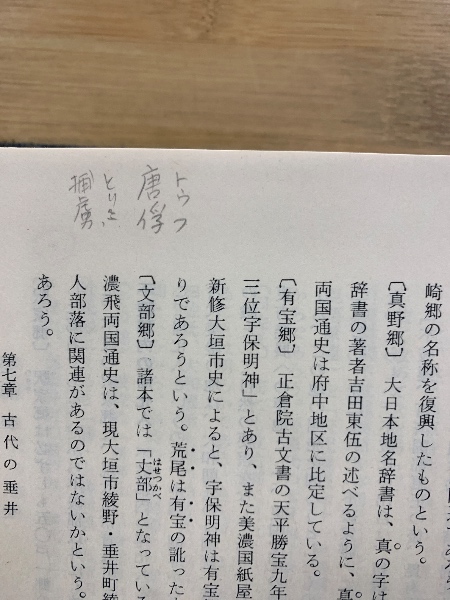 トウフ
唐俘
とりこ
捕虜
崎郷の名称を復興したものという。
〔真野郷〕 大日本地名辞書は、真の字は
辞書の著者吉田東伍の述べるように、真
両国通史は府中地区に比定している。
〔有宝郷〕 正倉院古文書の天平勝宝九年
三位宇保明神」とあり、また美濃国紙屋
新修大垣市史によると、宇保明神は有宝
りであろうという。荒尾は有宝の訛った
〔文部郷〕 諸本では「丈部」となっている
はせつかべ
濃飛両国通史は、現大垣市綾野・垂井町綾
人部落に関連があるのではないかという。
あろう。
第七章 古代の垂井